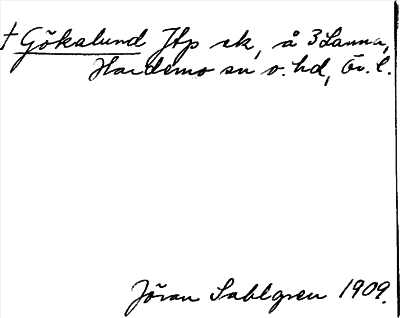 † Gökalund Jtp sk, å 3 Lanna,
Hardemo sn o. hd, Ör. l.
Jöran Sahlgren 1909.